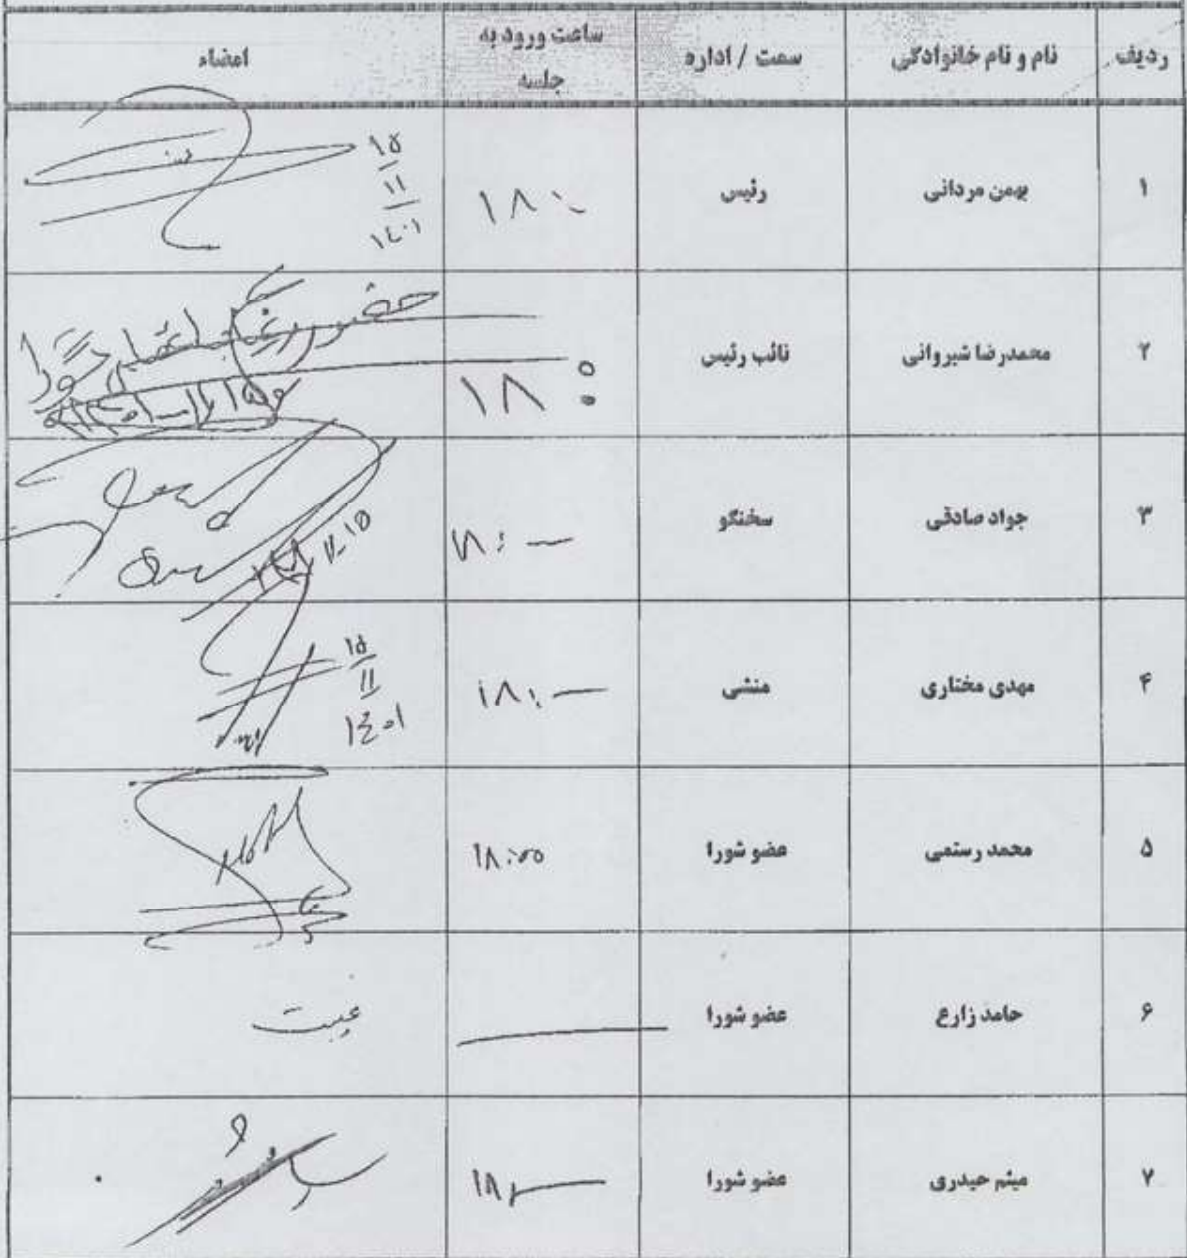 ردیف نام و نام خانوادگی سمت / اداره ساعت ورود به جلسه امضاء
۱ بهمن مردانی رئیس ۱۸:۰۰ ۱۵/۱۱/۱۴۰۱
۲ محمدرضا شیروانی نائب رئیس ۱۸:۰۰ حضور
۳ جواد صادقی سخنگو ۱۸:۰۰
۴ مهدی مختاری منشی ۱۸:۰۰ ۱۵/۱۱/۱۴۰۱
۵ محمد رستمی عضو شورا ۱۸:۰۰
۶ حامد زارع عضو شورا غیبت
۷ میثم حیدری عضو شورا ۱۸